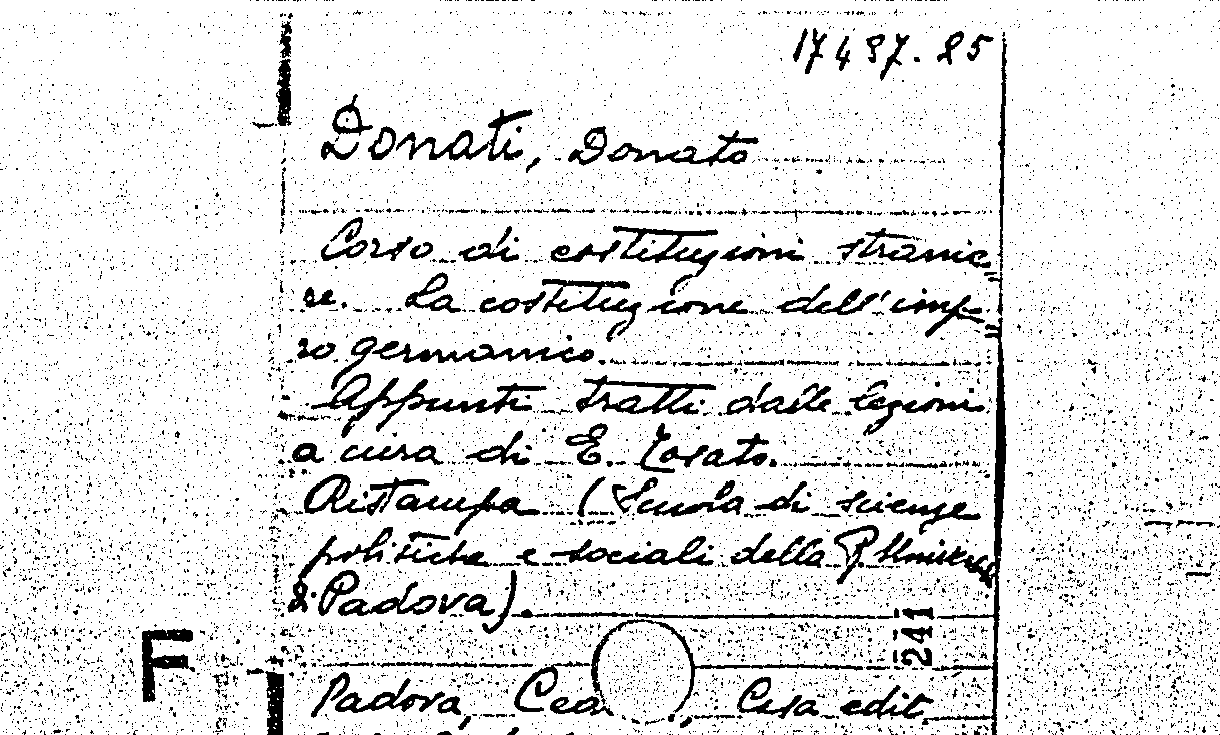 17437.25
Donati, Donato
Corso di costituzioni stranie=
re. La costituzione dell'impe=
ro germanico.
Appunti tratti dalle lezioni
a cura di E. Tosato.
Ristampa (Scuola di scienze
politiche e sociali della R. Univers.
di Padova).
241
F
Padova, Ceda , Casa edit.